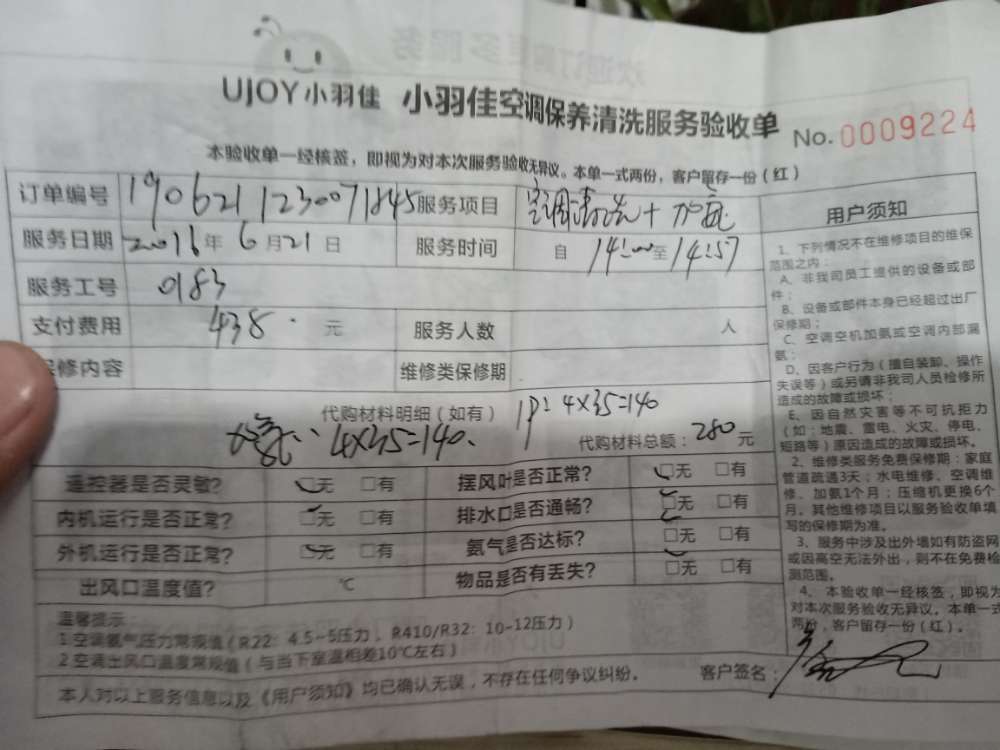 UJOY小羽佳 小羽佳空调保养清洗服务验收单 No.0009224
本验收单一经核签，即视为对本次服务验收无异议。本单一式两份，客户留存一份（红）
订单编号 1906211230071845 服务项目 空调清洗+加氟
服务日期 2016年6月21日 服务时间 自14:00至14:57
服务工号 0183
支付费用 438.元 服务人数 人
保修内容 维修类保修期
代购材料明细（如有） 1P：4×35=140
4×35=140. 代购材料总额：280元
遥控器是否灵敏？ □无 □有 摆风叶是否正常？ □无 □有
内机运行是否正常？ □无 □有 排水口是否通畅？ □无 □有
外机运行是否正常？ □无 □有 氨气是否达标？ □无 □有
出风口温度值？ ℃ 物品是否有丢失？ □无 □有
温馨提示
1 空调氨气压力常规值（R22：4.5~5压力，R410/R32：10-12压力）
2 空调出风口温度常规值（与当下室温相差10℃左右）
本人对以上服务信息以及《用户须知》均已确认无误，不存在任何争议纠纷。 客户签名：
用户须知
1、下列情况不在维修项目的维保
范围之内：
A、非我司员工提供的设备或部
件；
B、设备或部件本身已经超过出厂
保修期；
C、空调空机加氨或空调内部漏
氨；
D、因客户行为（擅自装卸、操作
失误等）或另请非我司人员检修所
造成的故障或损坏；
E、因自然灾害等不可抗拒力
（如：地震、雷电、火灾、停电、
短路等）原因造成的故障或损坏。
2、维修类服务免费保修期：家庭
管道疏通3天；水电维修、空调维
修、加氨1个月；压缩机更换6个
月。其他维修项目以服务验收单填
写的保修期为准。
3、服务中涉及出外墙如有防盗网
或因高空无法外出，则不在免费检
测范围。
4、本验收单一经核签，即视为
对本次服务验收无异议。本单一式
两份，客户留存一份（红）。